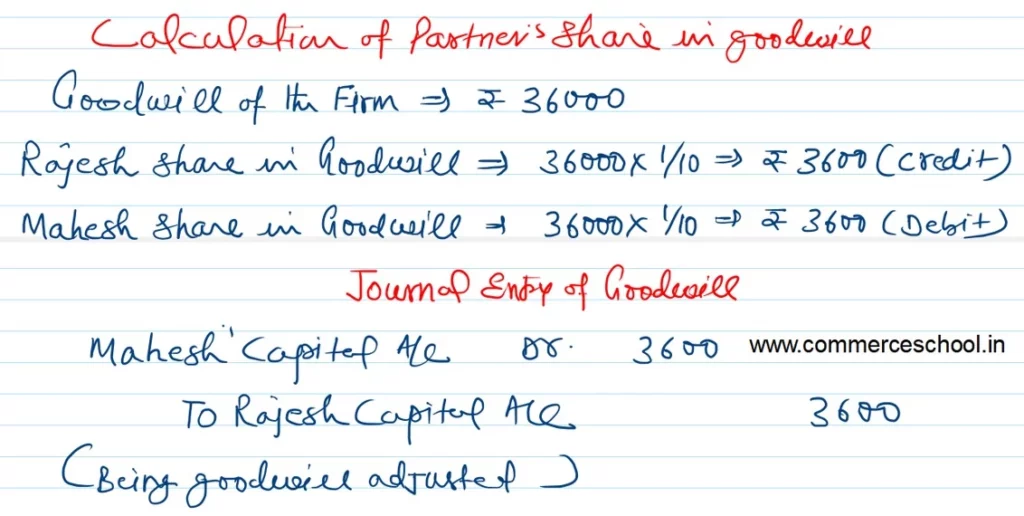 Calculation of Partner's Share in goodwill
Goodwill of the Firm ⇒ ₹ 36000
Rajesh Share in Goodwill ⇒ 36000 x 1/10 ⇒ ₹ 3600 (Credit)
Mahesh Share in Goodwill ⇒ 36000 x 1/10 ⇒ ₹ 3600 (Debit)
Journal Entry of Goodwill
Mahesh' Capital A/c Dr. 3600 www.commerceschool.in
To Rajesh Capital A/c 3600
(Being goodwill adjusted)